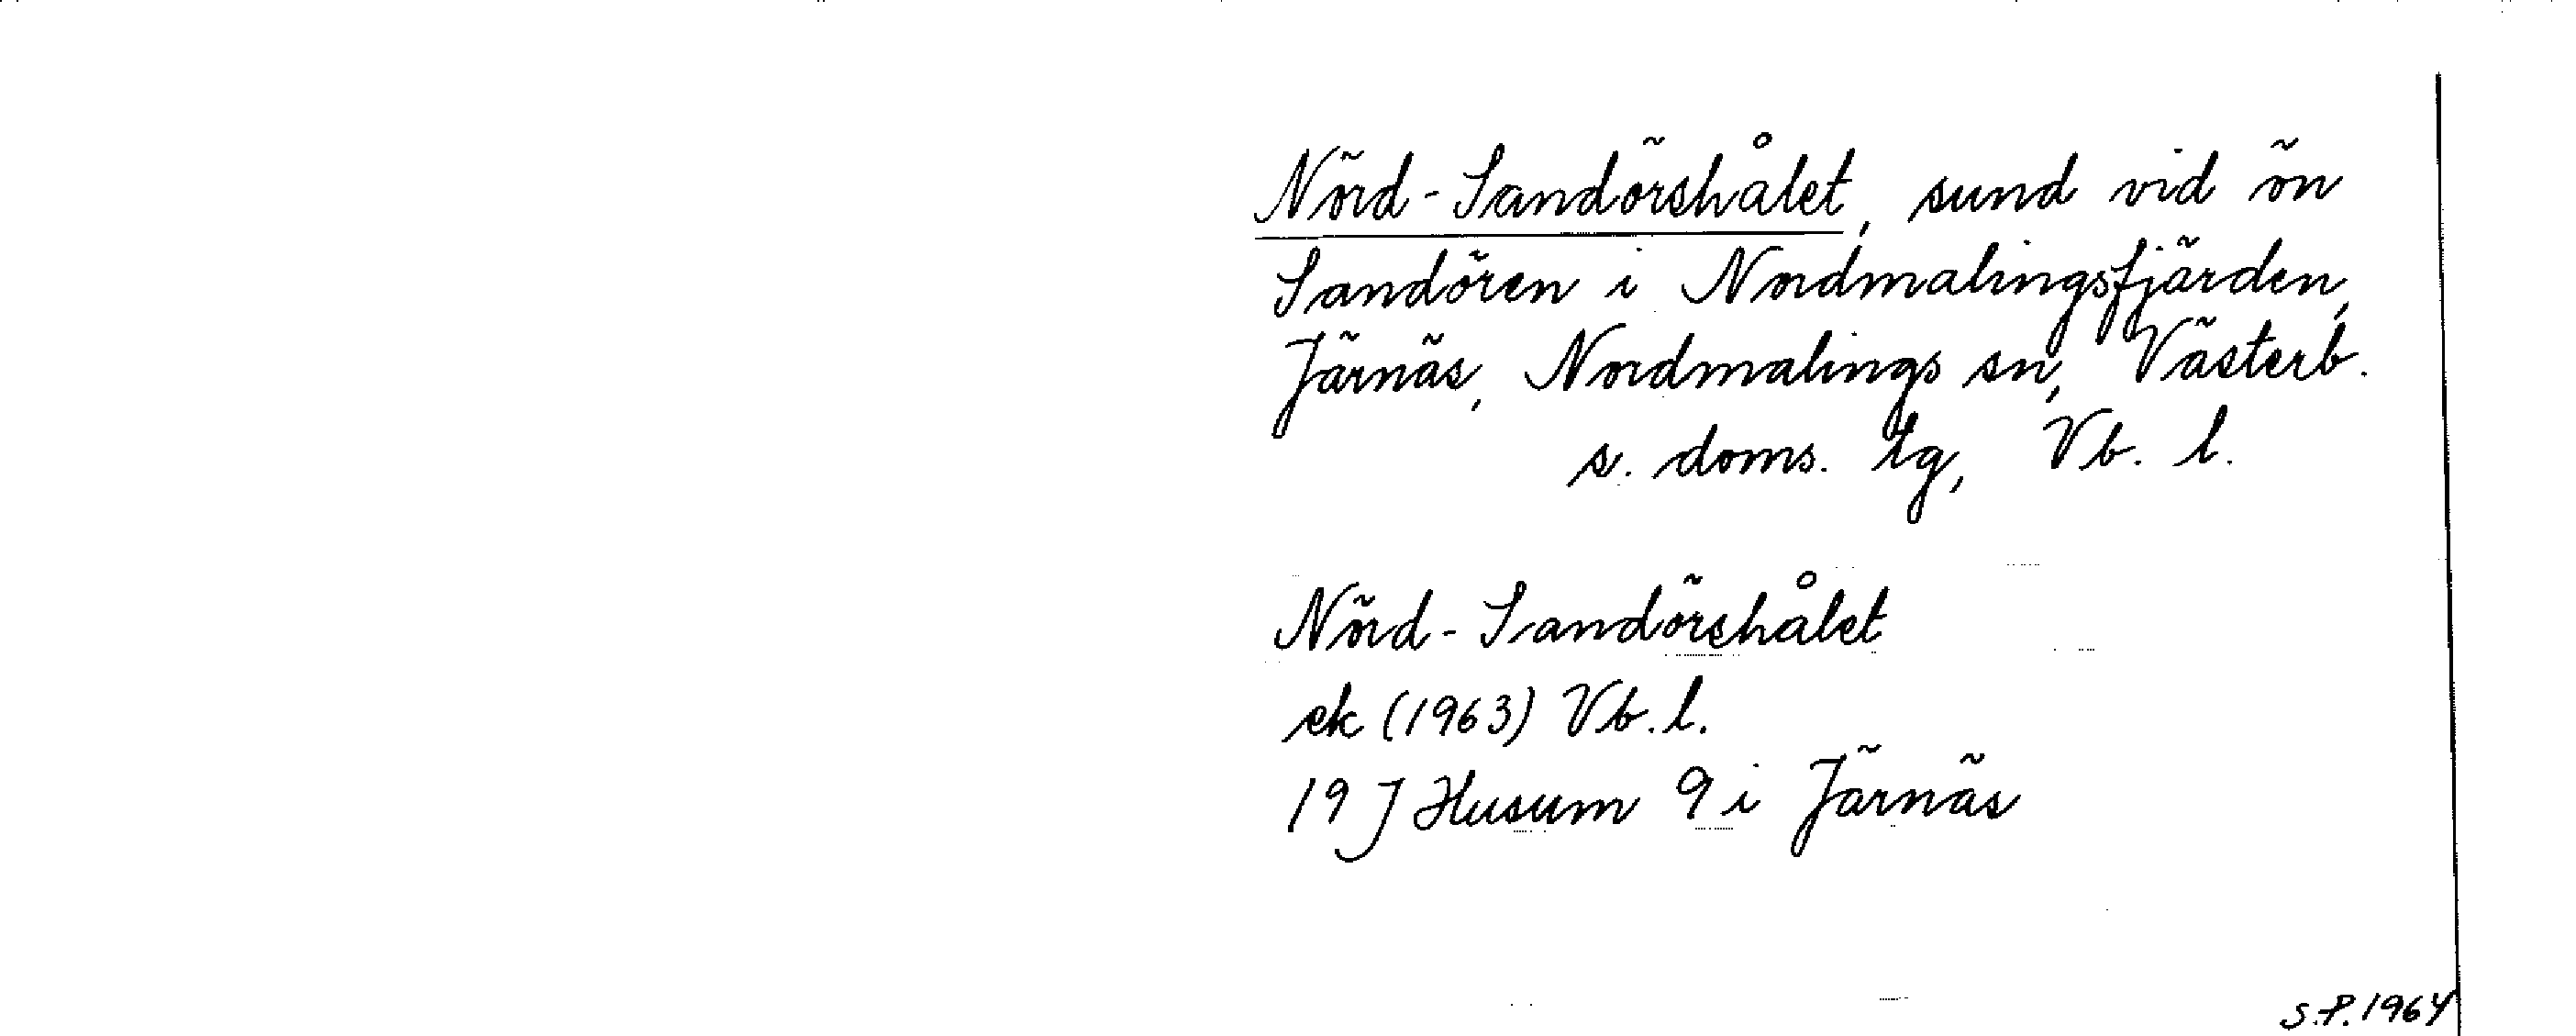 Nörd-Sandörshålet, sund vid ön
Sandören i Nordmalingsfjärden,
Järnäs, Nordmalings sn, Västerb.
s. doms. tg, Vb. l.
Nörd-Sandörshålet
ek (1963) Vb. l.
19 J Husum 9 i Järnäs
S.P. 1964